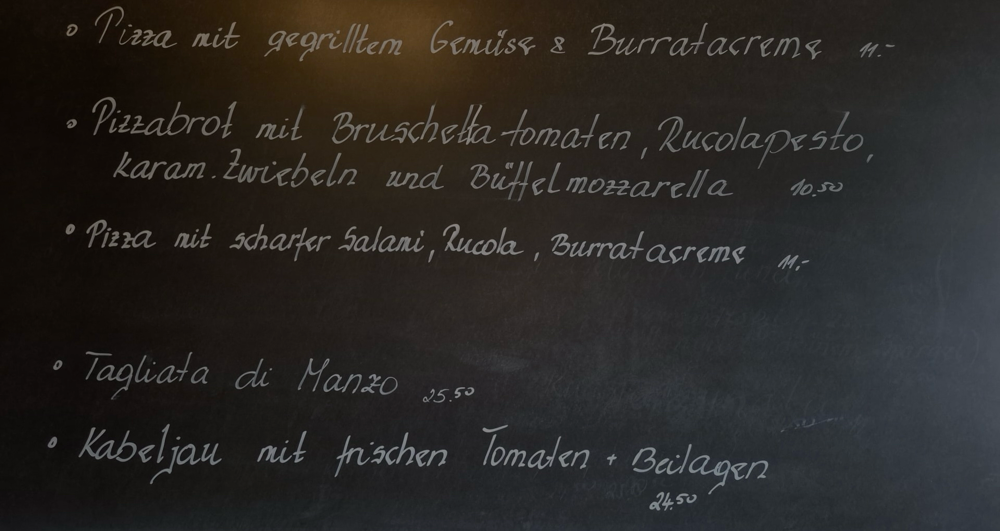 ° Pizza mit gegrilltem Gemüse & Burratacreme 11.-
° Pizzabrot mit Bruschettatomaten, Rucolapesto,
karam. Zwiebeln und Büffelmozzarella 10.50
° Pizza mit scharfer Salami, Rucola, Burratacreme 11.-
° Tagliata di Manzo 25.50
° Kabeljau mit frischen Tomaten + Beilagen
24.50